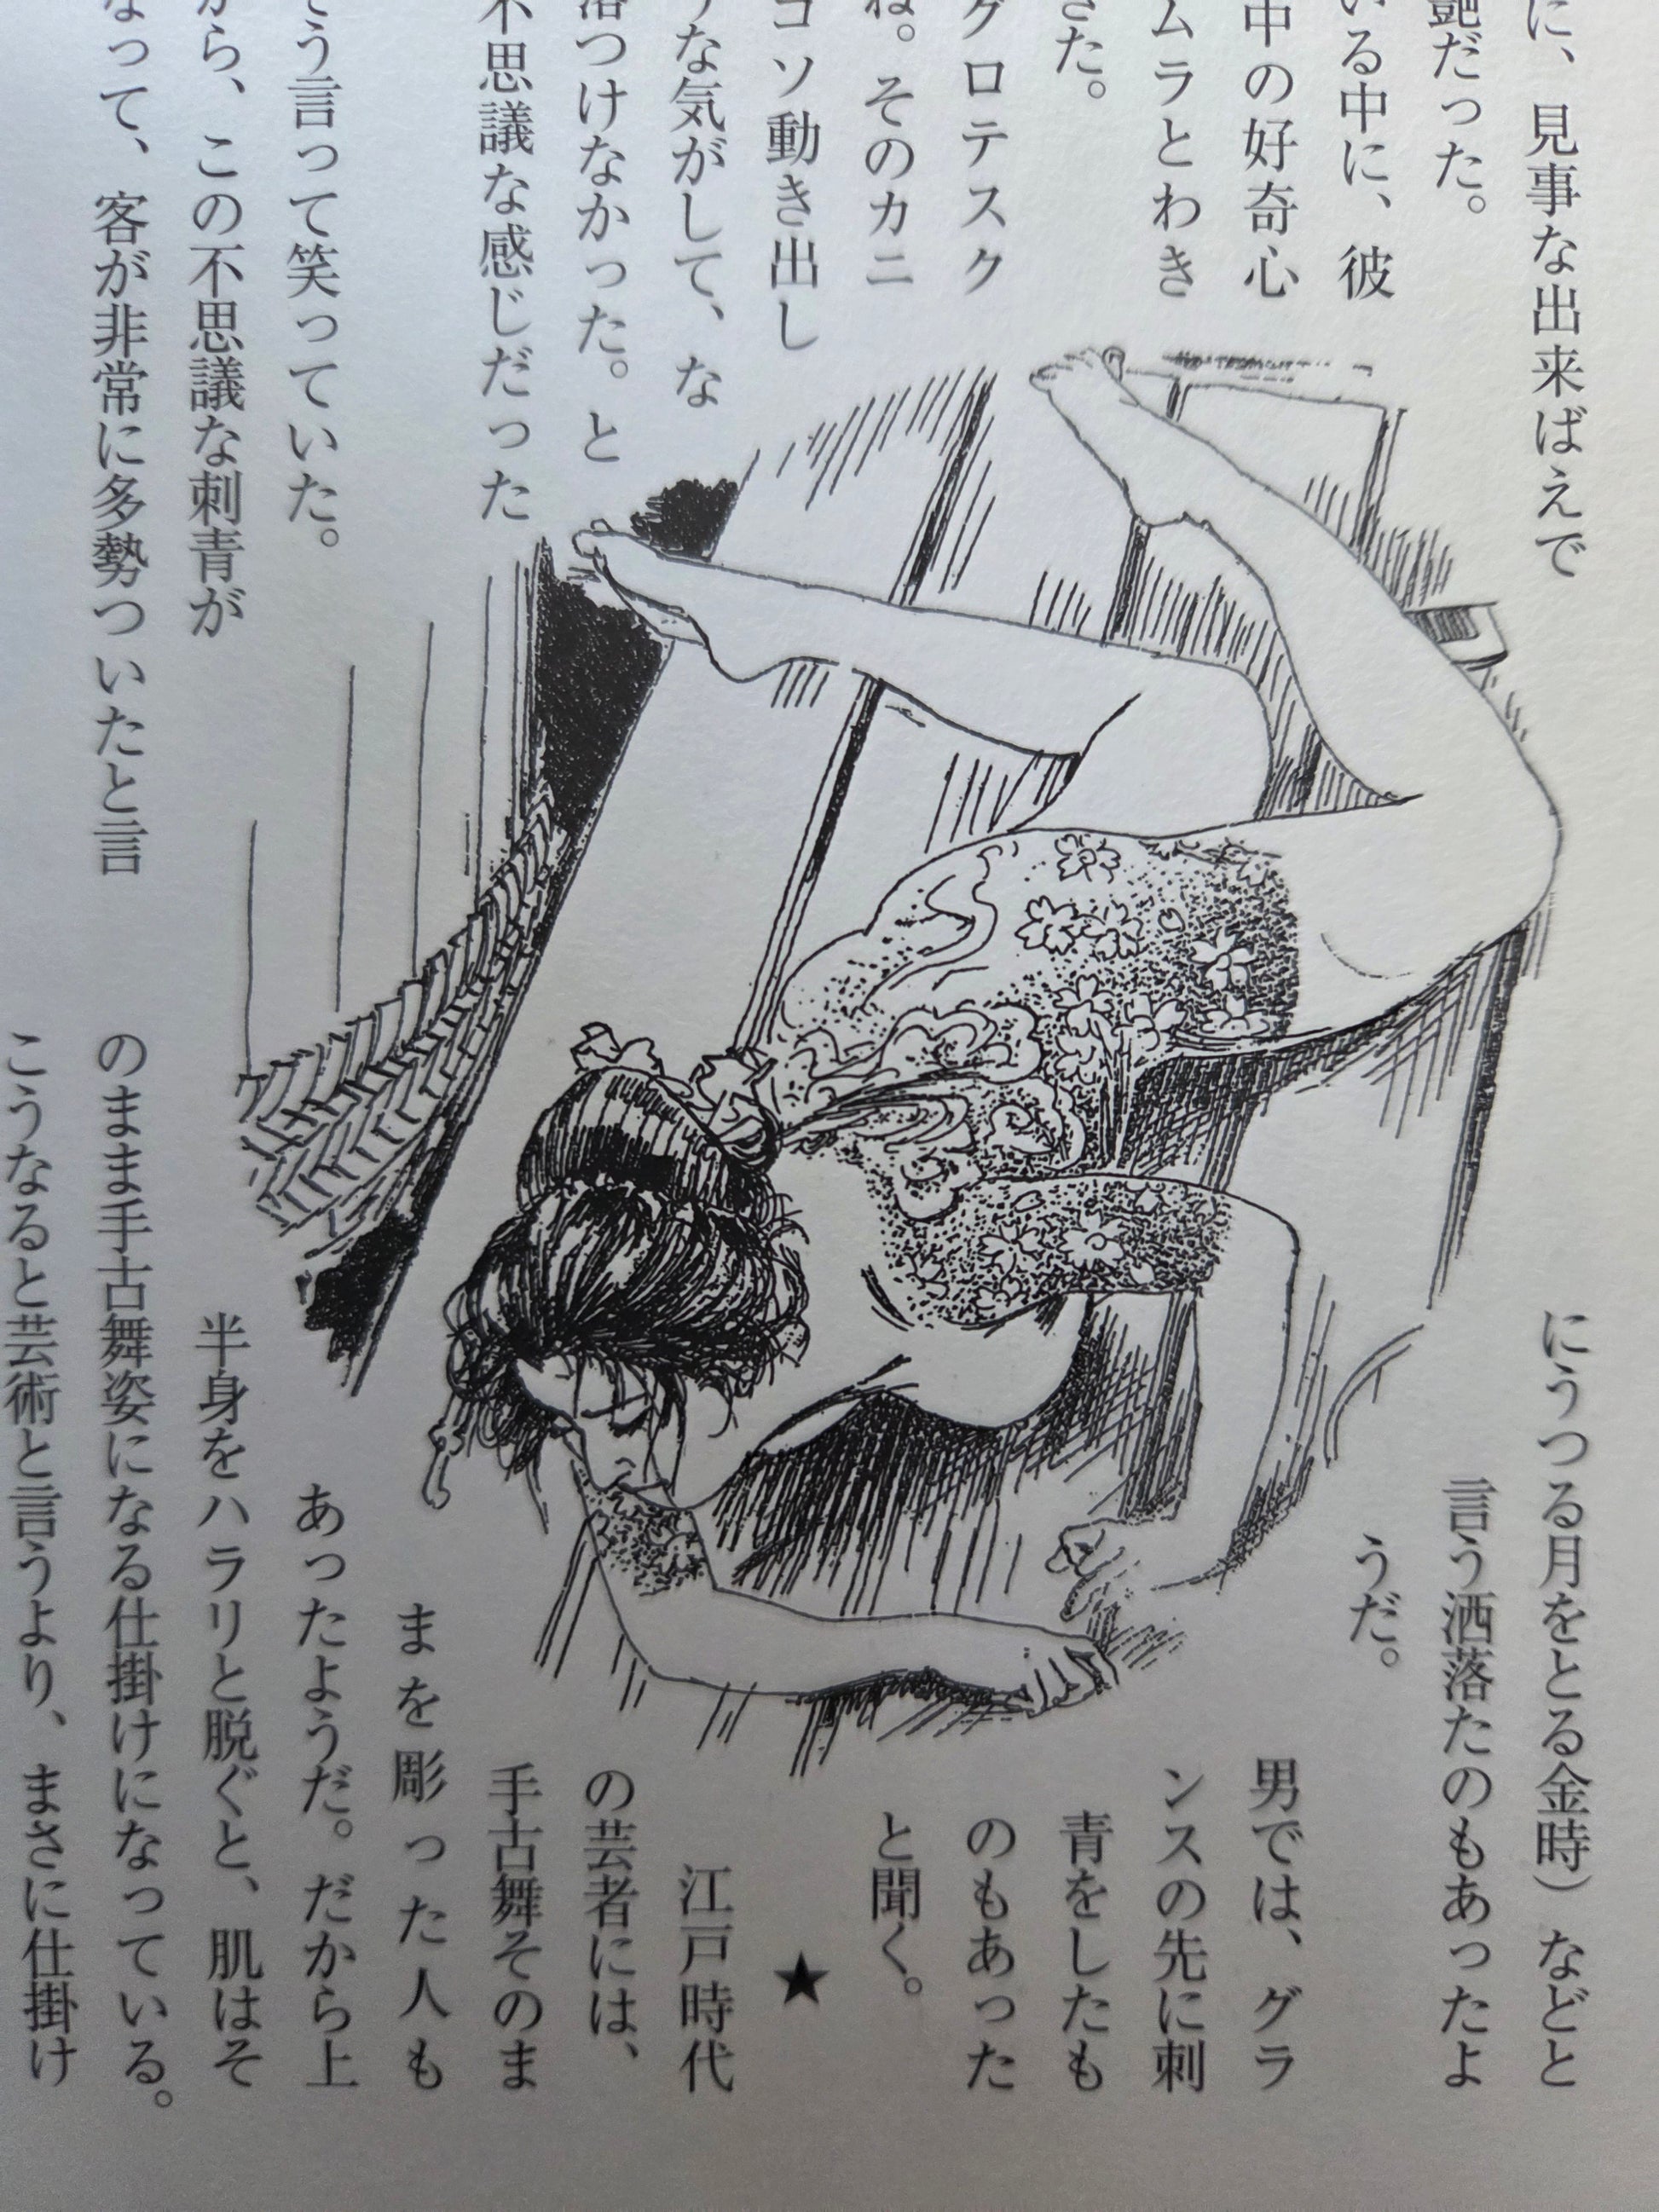 に、見事な出来ばえで
艶だった。
いる中に、彼
中の好奇心
ムラとわき
きた。
グロテスク
ね。そのカニ
コソ動き出し
うな気がして、な
落つけなかった。と
不思議な感じだった
そう言って笑っていた。
から、この不思議な刺青が
なって、客が非常に多勢ついたと言
にうつる月をとる金時）などと
言う洒落たのもあったよ
うだ。
男では、グラ
ンスの先に刺
青をしたも
のもあった
と聞く。
★
江戸時代
の芸者には、
手古舞そのま
まを彫った人も
あったようだ。だから上
半身をハラリと脱ぐと、肌はそ
のまま手古舞姿になる仕掛けになっている。
こうなると芸術と言うより、まさに仕掛け